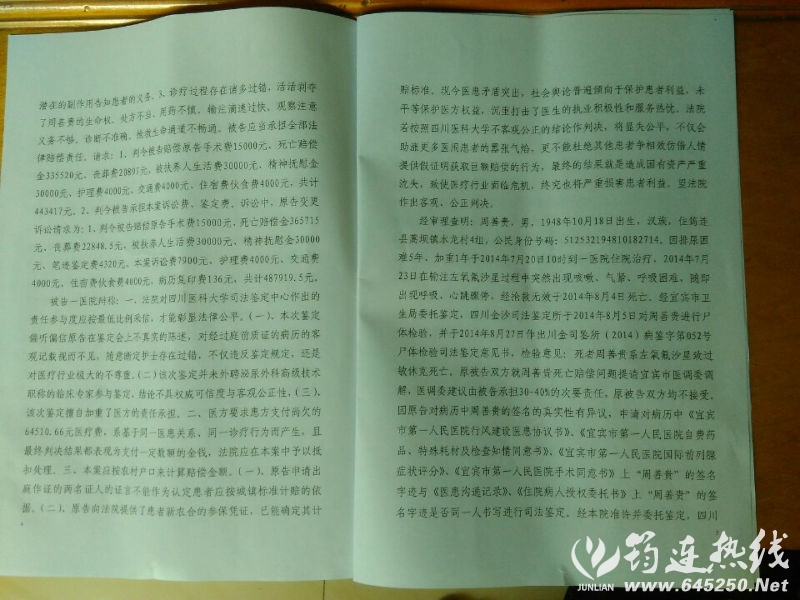 潜在的副作用告知患者的义务、3、诊疗过程存在诸多过错，活活剥夺
了周善贵的生命权。处方不当、用药不慎、输注滴速过快、观察注意
义务不够、诊断不准确、抢救生命通道不畅通。被告应当承担全部法
律赔偿责任。请求：1、判令被告赔偿原告手术费15000元，死亡赔偿
金335520元、丧葬费20897元，被扶养人生活费30000元、精神抚慰金
30000元，护理费4000元、交通费4000元、住宿费伙食费4000元，共计
443417元。2、判令被告承担本案诉讼费、鉴定费。诉讼中，原告变更
诉讼请求为：1、判令被告赔偿原告手术费15000元，死亡赔偿金365715
元、丧葬费22848.5元，被扶养人生活费30000元，精神抚慰金30000
元、笔迹鉴定费4320元、本案诉讼费7900元、护理费4000元、交通费
4000元、住宿费伙食费4000元，病历复印费136元，共计487919.5元。
被告一医院辩称：一、法院对四川医科大学司法鉴定中心作出的
责任参与度应按最低比例采信，才能彰显法律公平。（一）、本次鉴定
偏听偏信原告在鉴定会上不真实的陈述，对经过庭前质证的病历的客
观记载视而不见，随意断定护士存在过错，不仅违反鉴定规定，还是
对医疗行业极大的不尊重。（二）该次鉴定并未外聘泌尿外科高级技术
职称的临床专家参与鉴定，结论不具权威可信度与客观公正性，（三）、
该次鉴定擅自加重了医方的责任承担。二、医方要求患方支付尚欠的
64510.66元医疗费，系基于同一医患关系、同一诊疗行为而产生，且
最终判决结果都表现为支付一定数额的金钱，法院应在本案中予以抵
扣处理。三、本案应按农村户口来计算赔偿金额。（一）、原告申请出
庭作证的两名证人的证言不能作为认定患者应按城镇标准计赔的依
据。（二）、原告向法院提供了患者新农合的参保凭证，已能确定其计
4
赔标准。现今医患矛盾突出，社会舆论普遍倾向于保护患者利益，未
平等保护医方权益，沉重打击了医生的执业积极性和服务热忱。法院
若按照四川医科大学不客观公正的结论作判决，将显失公平，不仅会
助涨更多医闹患者的嚣张气焰，更不能杜绝其他患者争相效仿借人情
提供假证明获取巨额赔偿的行为，最终的结果就是造成国有资产严重
流失，致使医疗行业面临危机，终究也将严重损害患者利益，望法院
作出客观、公正判决。
经审理查明：周善贵，男，1948年10月18日出生，汉族，住筠连
县蒿坝镇水龙村4组，公民身份号码：512532194810182714。因排尿困
难5年，加重1年于2014年7月20日10时到一医院住院治疗，2014年7月
23日在输注左氧氟沙星过程中突然出现咳嗽、气紧、呼吸困难，随即
出现呼吸、心跳骤停，经抢救无效于2014年8月4日死亡。经宜宾市卫
生局委托鉴定，四川金沙司法鉴定所于2014年8月5日对周善贵进行尸
体检验，并于2014年8月27日作出川金司鉴所（2014）病鉴字第052号
尸体检验司法鉴定意见书，检验意见：死者周善贵系左氧氟沙星致过
敏休克死亡。原被告双方就周善贵死亡赔偿问题提请宜宾市医调委调
解，医调委建议由被告承担30-40%的次要责任，原被告双方均不接受。
因原告对病历中周善贵的签名的真实性有异议，申请对病历中《宜宾
市第一人民医院行风建设医患协议书》、《宜宾市第一人民医院自费药
品、特殊耗材及检查知情同意书》、《宜宾市第一人民医院国际前列腺
症状评分》、《宜宾市第一人民医院手术同意书》上“周善贵”的签名
字迹与《医患沟通记录》、《住院病人授权委托书》上“周善贵”的签
名字迹是否同一人书写进行司法鉴定。经本院准许并委托鉴定，四川
筠连热线
JUNLIAN
www.645250.Net